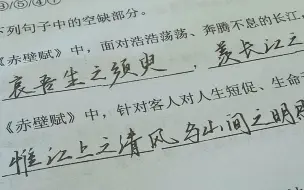 ③/⑤/④/①
下列句子中的空缺部分。
《赤壁赋》中，面对浩浩荡荡、奔腾不息的长江，
哀吾生之须臾，羡长江之
《赤壁赋》中，针对客人对人生短促、生命
惟江上之清风，与山间之明